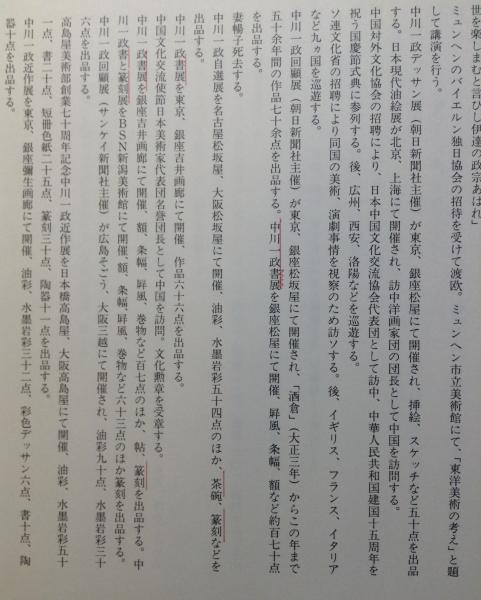 世を楽しまむと言ひし伊達の政宗あはれ」
ミュンヘンのバイエルン独日協会の招待を受けて渡欧。ミュンヘン市立美術館にて、「東洋美術の考え」と題
して講演を行う。
中川一政デッサン展（朝日新聞社主催）が東京、銀座松屋にて開催され、挿絵、スケッチなど五十点を出品
する。日本現代油絵展が北京、上海にて開催され、訪中洋画家団の団長として中国を訪問する。
中国対外文化協会の招聘により、日本中国文化交流協会代表団として訪中、中華人民共和国建国十五周年を
祝う国慶節式典に参列する。後、広州、西安、洛陽などを巡遊する。
ソ連文化省の招聘により同国の美術、演劇事情を視察のため訪ソする。後、イギリス、フランス、イタリア
など九ヵ国を巡遊する。
中川一政回顧展（朝日新聞社主催）が東京、銀座松坂屋にて開催され、「酒倉」（大正三年）からこの年まで
五十余年間の作品七十余点を出品する。中川一政書展を銀座松屋にて開催、屛風、条幅、額など約百七十点
を出品する。
妻暢子死去する。
中川一政自選展を名古屋松坂屋、大阪松坂屋にて開催、油彩、水墨岩彩五十四点のほか、茶碗、篆刻などを
出品する。
中川一政書展を東京、銀座吉井画廊にて開催、作品六十六点を出品する。
中国文化交流使節日本美術家代表団名誉団長として中国を訪問。文化勲章を受章する。
中川一政書展を銀座吉井画廊にて開催、額、条幅、屛風、巻物など百七点のほか、帖、篆刻を出品する。中
川一政書と篆刻展をＢＳＮ新潟美術館にて開催、額、条幅屛風、巻物など六十三点のほか篆刻を出品する。
中川一政回顧展（サンケイ新聞社主催）が広島そごう、大阪三越にて開催され、油彩九十点、水墨岩彩三十
六点を出品する。
高島屋美術部創業七十周年記念中川一政近作展を日本橋高島屋、大阪高島屋にて開催、油彩、水墨岩彩五十
一点、書二十点、短冊色紙二十五点、篆刻三十点、陶器十一点を出品する。
中川一政近作展を東京、銀座彌生画廊にて開催、油彩、水墨岩彩三十二点、彩色デッサン六点、書十点、陶
器十点を出品する。